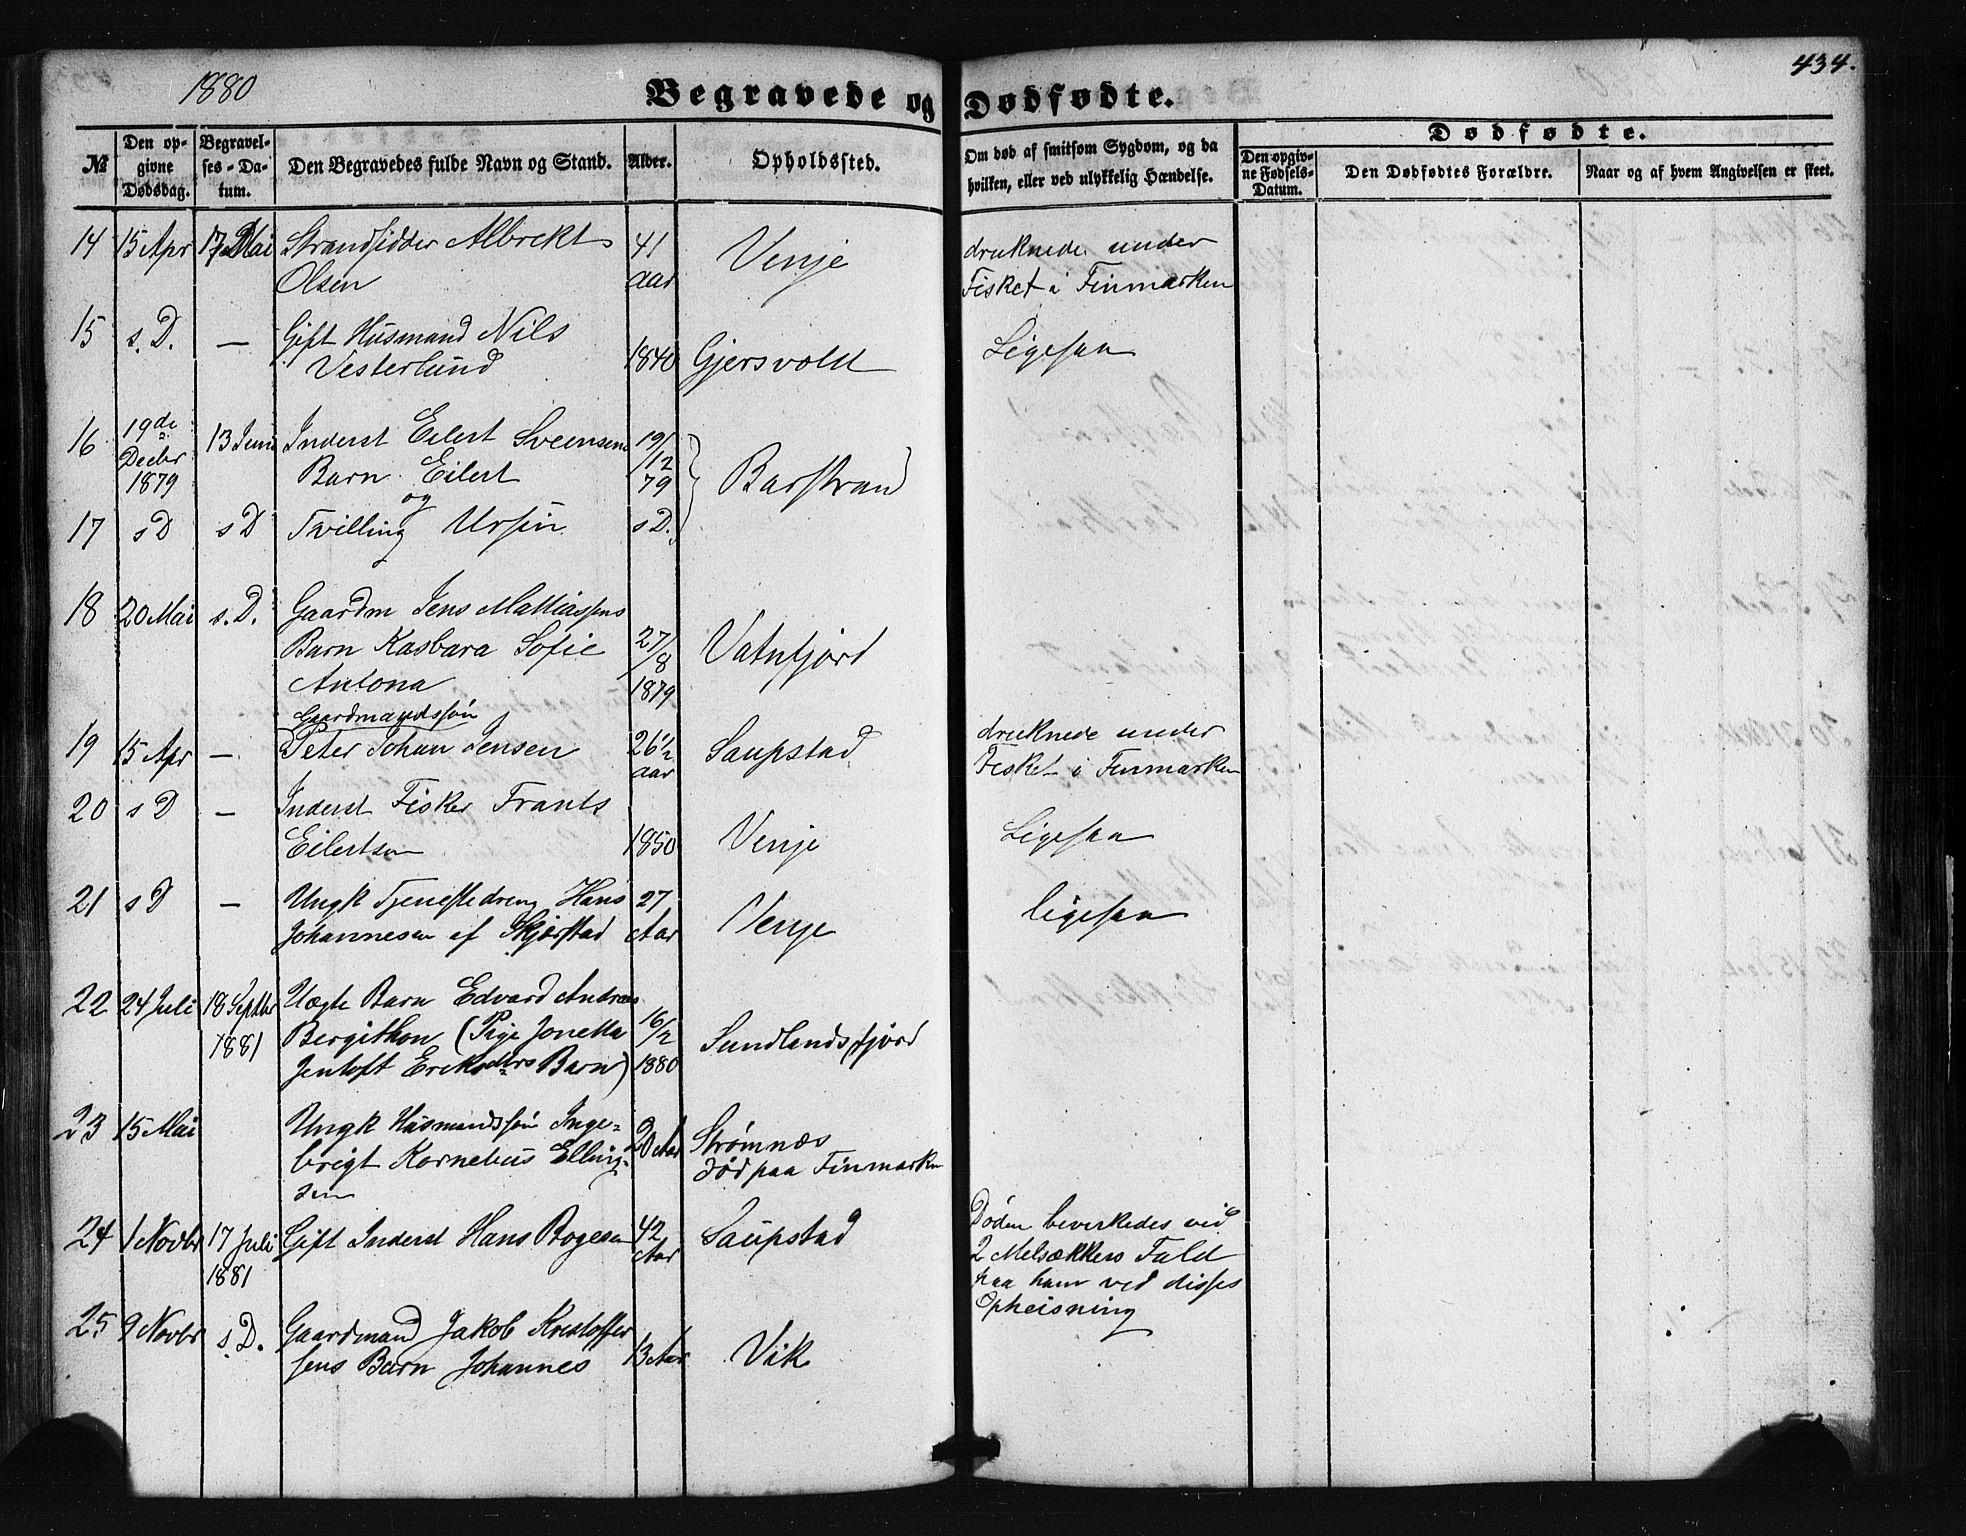 1880
434.
Begravede og Dødfødte.
№
Den opgivne Dødsdag.
Begravelses-Datum.
Den Begravedes fulde Navn og Stand.
Alder.
Opholdssted.
Om død af smitsom Sygdom, og da
hvilken, eller ved ulykkelig Hændelse.
Dødfødte.
Den opgivne Fødsels-Datum.
Den Dødfødtes Forældre.
Naar og af hvem Angivelsen er skeet.
14 15 Apr 17 Mai Strandsidder Albrekt 41 Venje druknede under
Olsen aar Fisket i Finmarken
15 s. D. — Gift Husmand Nils
Vesterlund 1840 Gjersvold Ligesaa
16 19de Decbr 1879 13 Juni Inderst Eilert Sveensens 19/12 79
Barn Eilert Barstrand
og
17 s D s D Tvilling Ursin s D.
18 20 Mai s. D. Gaardm Jens Mathiassens
Barn Kasbara Sofie 27/8 1879 Vatnfjord
Antona
Gaardmandssøn
19 15 Apr — Peter Johan Jensen 26½ aar Saupstad druknede under
Fisket i Finmarken
20 s D — Inderst Fisker Frants
Eilertsen 1850 Venje Ligesaa
21 s D — Ungk Tjenestedreng Hans 27
Johannesen af Skjørstad Aar Venje ligesaa
22 24 Juli 18 Septbr 1881 Uægte Barn Edvard Andreas
Bergithon (Pige Jonetta 16/2 1880 Sundlandsfjord
Jentoft Eriksdtrs Barn)
23 15 Mai Ungk Husmandssøn Inge=
brigt Kornelius Elling= 20 Aar Strømnæs
sen død paa Finmarken
24 1 Novbr 17 Juli 1881 Gift Inderst Hans Bogesen 42 Aar Saupstad Døden bevirkedes ved
2 Melsækkers Fald
paa ham ved disses
Opheisning
25 9 Novbr s. D. Gaardmand Jakob Kristoffer
sens Barn Johannes 13 Aar Vik